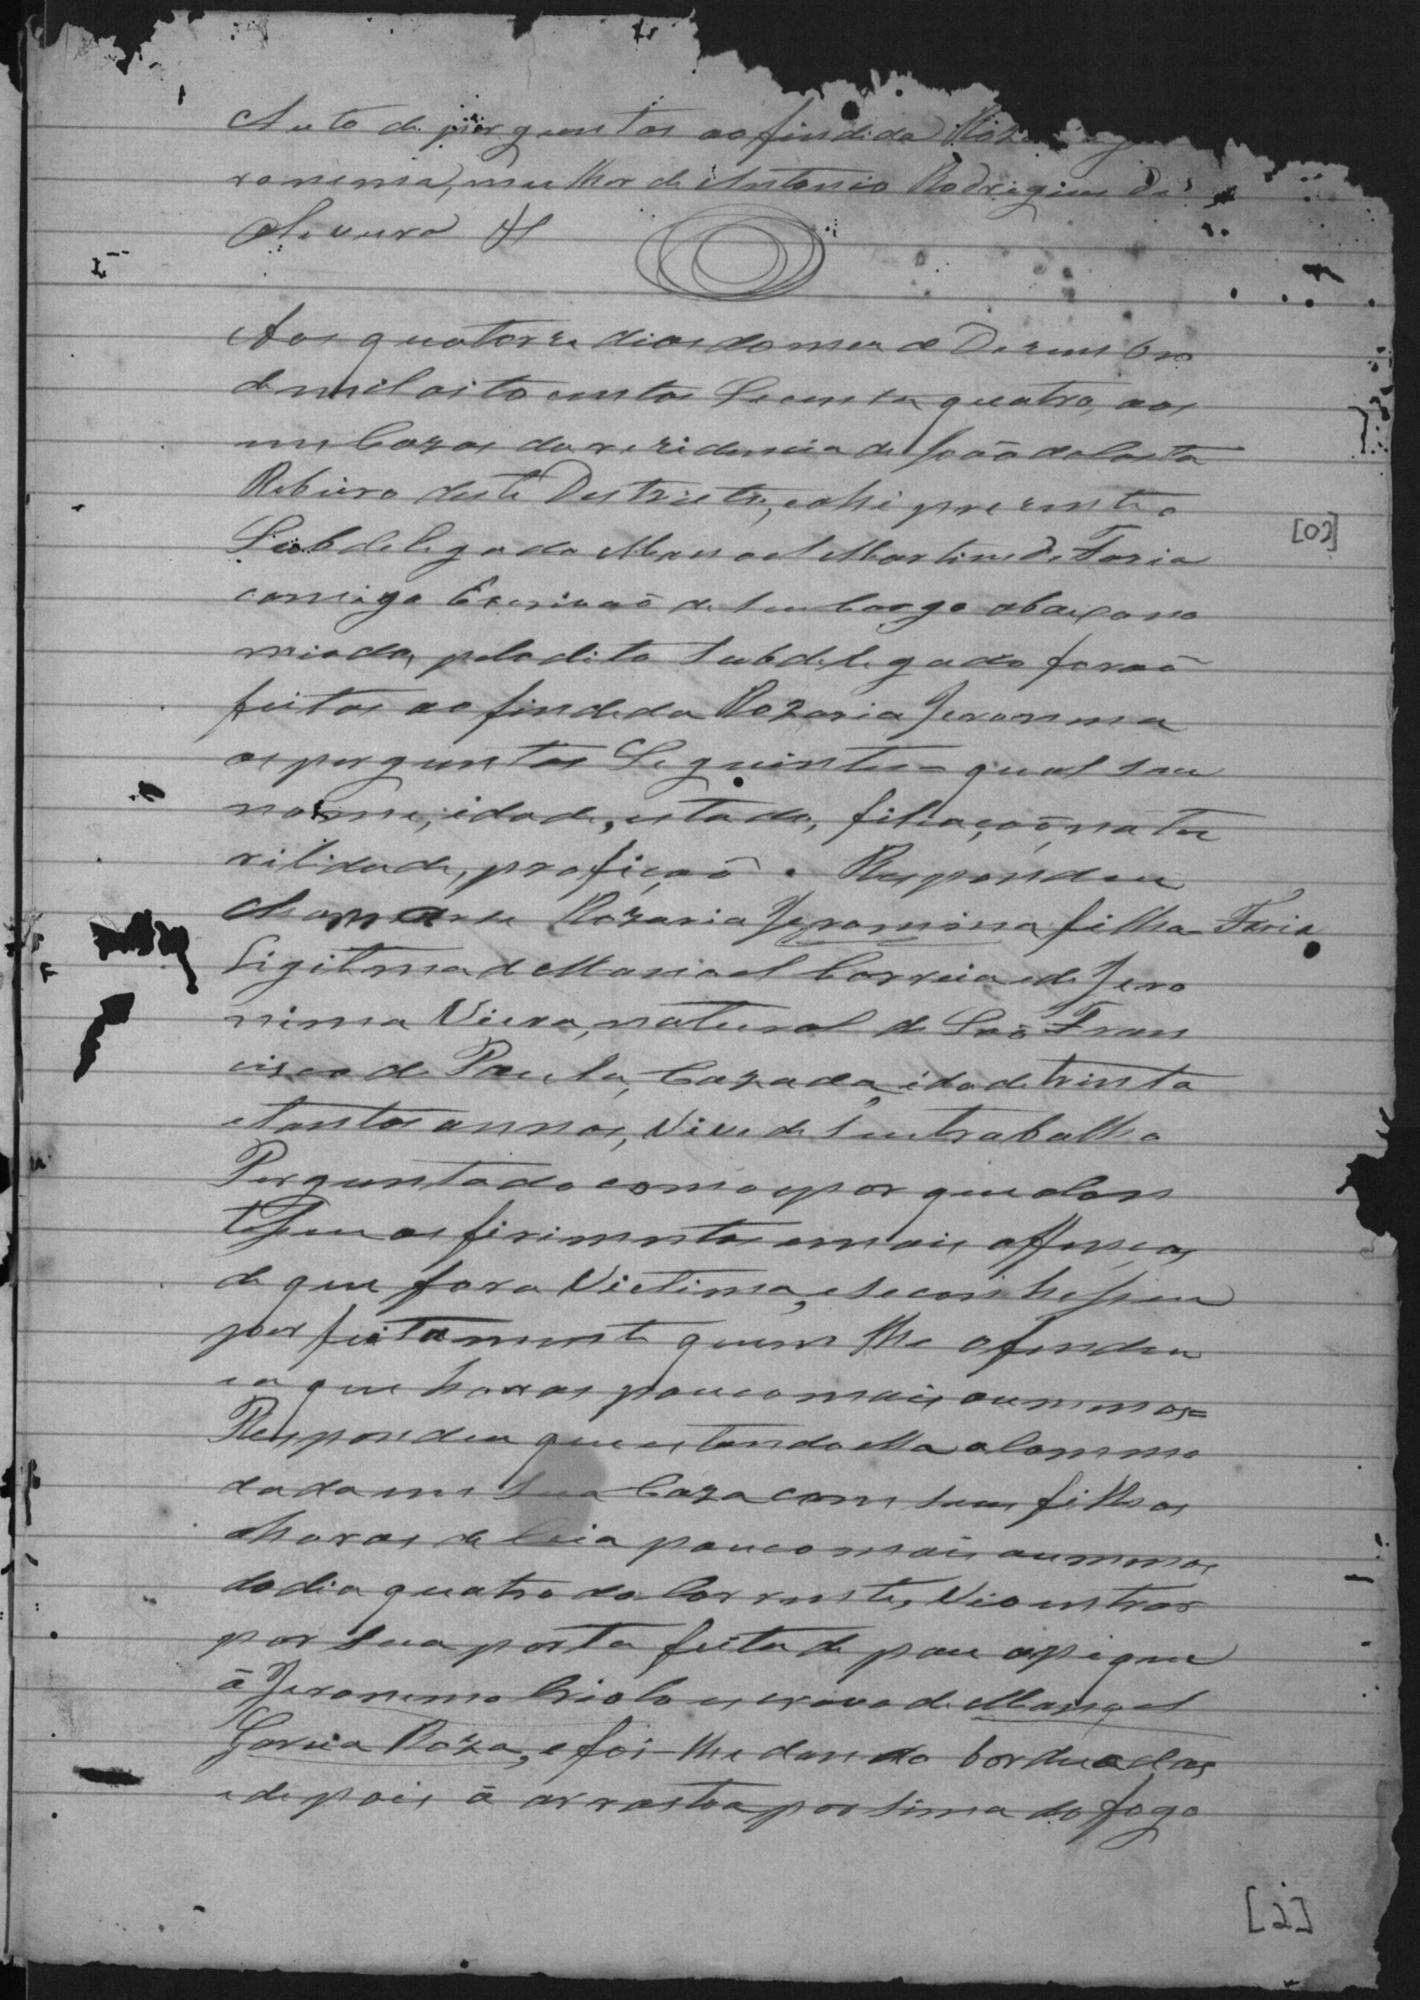 Auto de perguntas ao findida Roza
ronima, mulher de Antonio Rodrigues De
oliveira
Aos quatorze dias do mez de Dezembro
de mil oito centos Secenta quatro, aos
em Cazas da rezidencia de João da Costa
Ribeiro deste Destricto, eahi prezente o
Subdelegado Manoel Martins De Faria
comigo Escrivaõ de seu Cargo abaixo no
miado, pelo dito Subdelegado foraõ
feitas ao findida Rozaria Jeronima
as perguntas Seguintes = qual seu
nome, idade, estado, filiaçaõ, natu
rilidade, profiçaõ. Respondeu
chamarse Rozaria Jeronima filha Faria
Ligitima de Manoel Correia e de Jero
nima Vieira, natural de Saõ Fran
cisco de Paula, Cazada, idade trinta
e tantos annos, Vive de seu trabalho
Perguntado como e por que acon
teseu os firimentos e mais offenças
de que fora Victima, e se conheseu
perfeitamente quem lhe ofendeu
e a que horas pouco mais ou menos =
Respondeu que estando ella acommo
dada em sua Caza com seus filhos
a horas de Ceia pouco mais ou menos
do dia quatro do Corrente, Vio entrar
por sua porta feita de pau apique
ã Jeronimo Criolo escravo de Manoel
Garcia Roza, e foi-lhe dando borduadas
e depois ã arrasta por sima do fogo
[02]
[2]